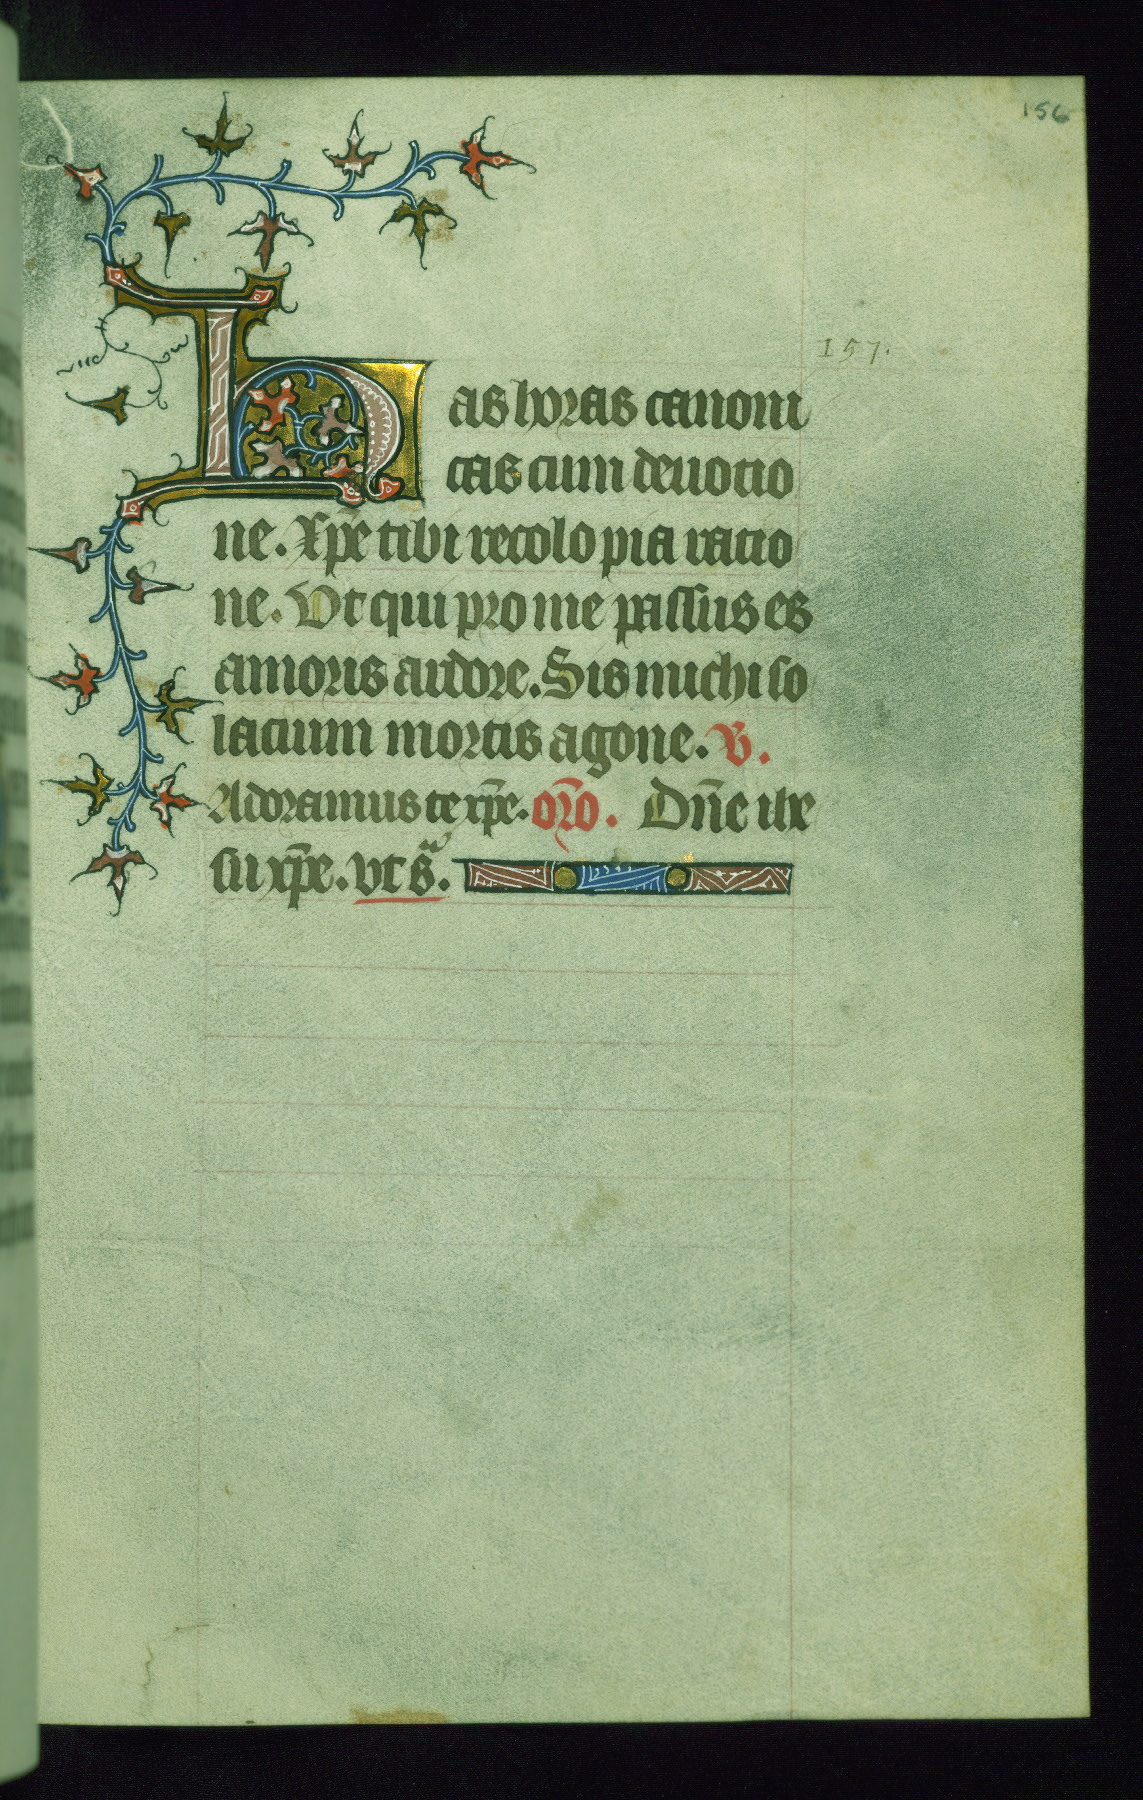 156
157.
Has horas canoni
cas cum deuotio
ne. Xp̄e tibi recolo pia ratio
ne. Ut qui pro me passus es
amoris ardore. Sis michi so
lacium mortis agone. V.
Adoramus te xp̄e. or̄o. Dn̄e ihe
su xp̄e. vt sᵃ.